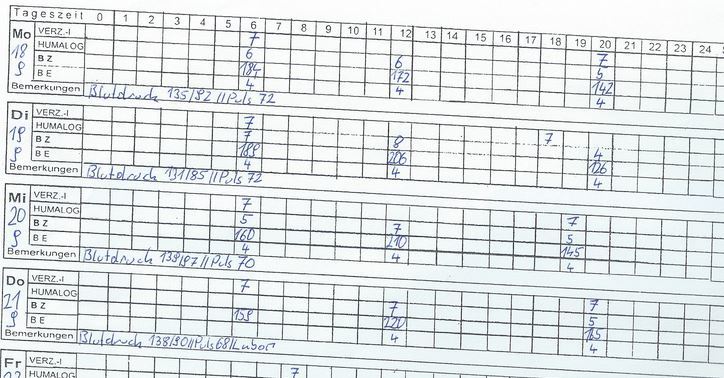 Tageszeit 0 1 2 3 4 5 6 7 8 9 10 11 12 13 14 15 16 17 18 19 20 21 22 23 24
Mo VERZ.-I 7 7
18 HUMALOG 6 6 5
9 BZ 184 172 142
BE 4 4 4
Bemerkungen Blutdruck 135/92 // Puls 72
Di VERZ.-I 7 7
19 HUMALOG 7 8 4
9 BZ 189 206 126
BE 4 4 4
Bemerkungen Blutdruck 131/85 // Puls 72
Mi VERZ.-I 7 7
20 HUMALOG 5 7 5
9 BZ 160 210 145
BE 4 4 4
Bemerkungen Blutdruck 139/97 // Puls 70
Do VERZ.-I 7 7
21 HUMALOG 7 5
9 BZ 159 220 165
BE 4 4
Bemerkungen Blutdruck 138/90 // Puls 68 / Labor
Fr VERZ.-I 7
HUMALOG